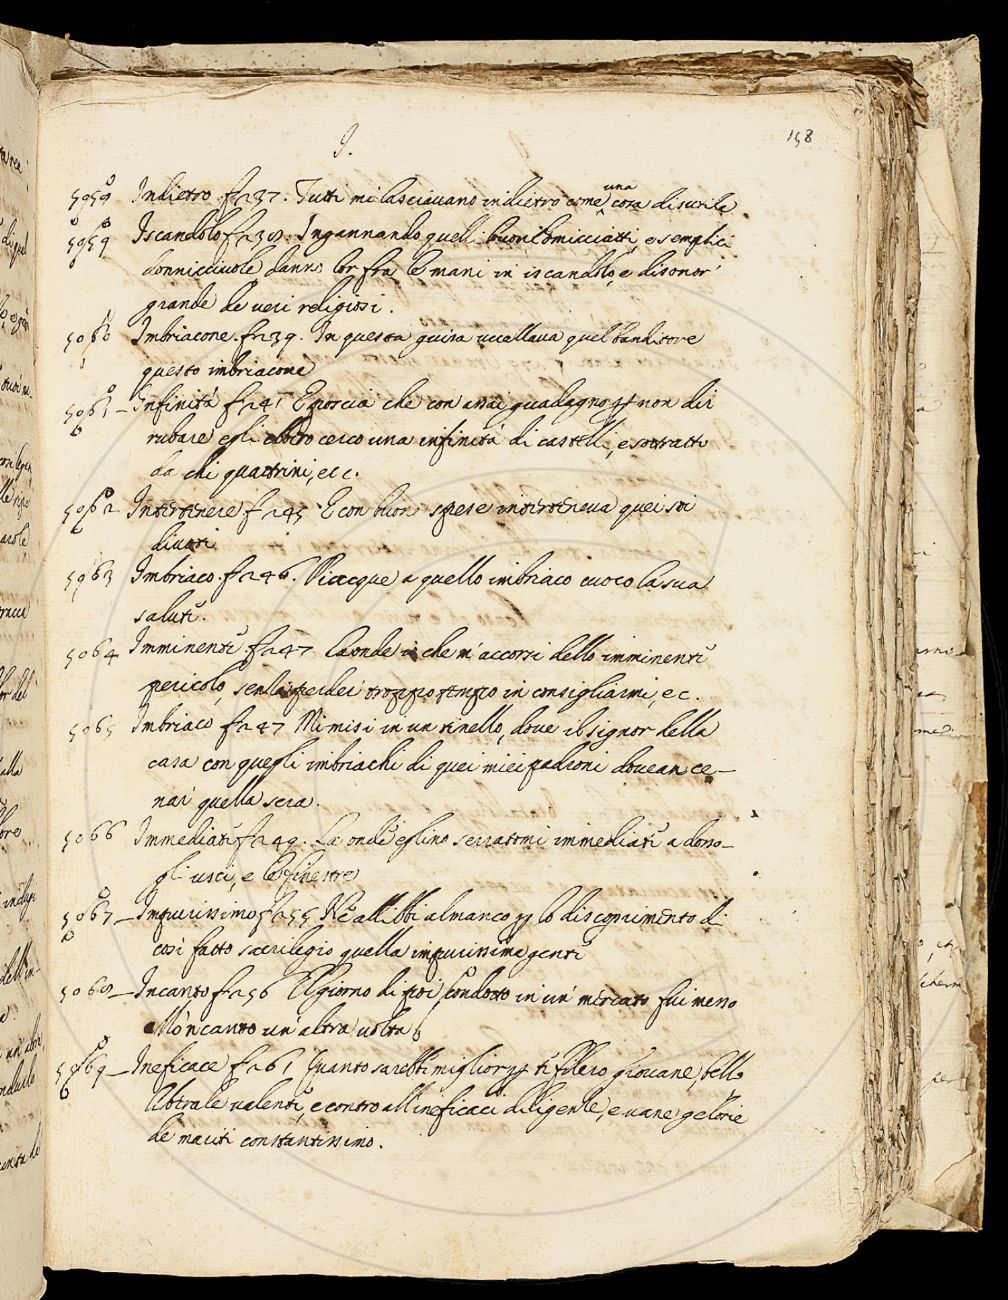 I.
158
5959 Indietro. fr 237. Tutti mi lasciavano indietro come una cosa disutile
5959 Iscandolo fr 238. Ingannando quelli buoni homicciatti, e semplici
donnicciuole danno lor fra le mani in iscandolo, e disonor'
grande de veri religiosi.
5060 Imbriacone. fr 239. In questa guisa uccellava quel banditore
questo imbriacone
5061 – Infinità fr 241 E poscia che con assai guadagno non di
rubare egli ebbe cerco una infinità di castelli, e sottratti
da chi quattrini, ecc.
5062 Intertenere fr 245 E con buon spese interteneva quei soi
divoti
5963 Imbriaco. fr 246. Piacque a quello imbriaco cuoco la sua
salute.
5064 Imminente fr 247 Laonde che m'accorsi dello imminente
pericolo, senza perder troppo tempo in consigliarmi, ec.
5065 Imbriaco fr 247 Mi misi in un tinello, dove il signor della
casa con quegli imbriachi di quei miei padroni dovean ce–
nar quella sera.
5066 Immediate fr 249. La onde eglino serratomi immediate a dosso–
gli usci, e le finestre
5067 – Impurissimo fr 255 Ne allibbi almanco lo discoprimento di
così fatto sacrilegio quella impurissima gente
5068 – Incanto fr 256 El giorno di poi condotto in un' mercato fui messo
all'oncanto un'altra volta
5969 – Ineficace fr 261 Quanto sarebbe miglior Filero giovane, bello
liberale valente, e contro all'ineficaci diligenze, e vane gelosie
de mariti constantissimo.